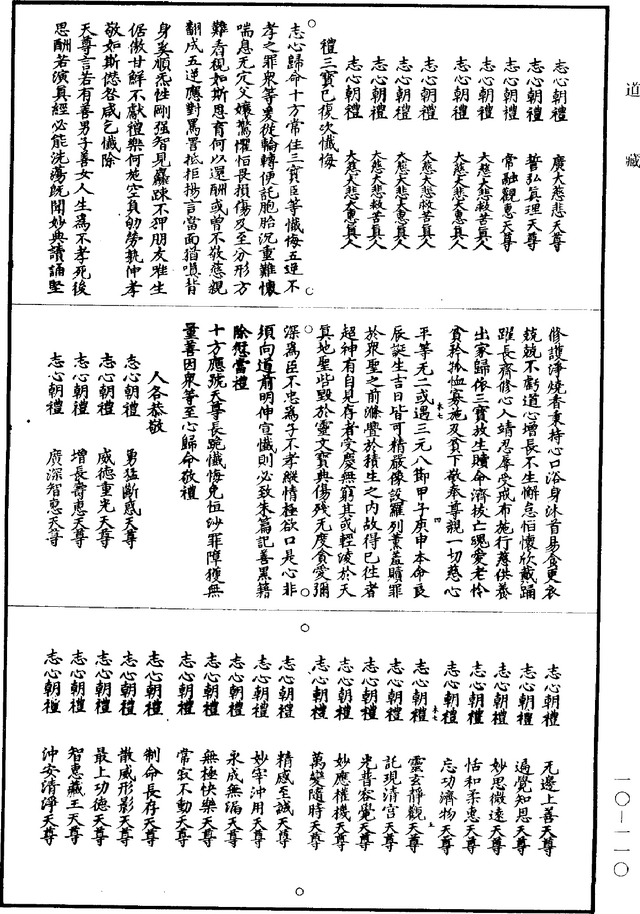 道藏
志心朝禮　廣大慈悲天尊
志心朝禮　誓弘真理天尊
志心朝禮　常融觀惠天尊
志心朝禮　大慈大悲救苦真人
志心朝禮　大慈大悲大惠真人
志心朝禮　大慈大悲救苦真人
志心朝禮　大慈大悲大惠真人
志心朝禮　大慈大悲救苦真人
志心朝禮　大慈大悲大惠真人
禮三寶已復次懺悔
志心歸命十方常住三寶臣等懺悔五逆不
孝之罪衆等爰從輪轉便託胞胎沉重難懷
喘息无定父孃驚懼怕畏損傷及至分形方
難看視如斯思育何以還酬或曾不敬慈親
翻成五逆應對罵詈抵拒揚言當面猶嗔背
身奚順炁性剛強智見麤踈不狎朋友雅生
倨傲甘鮮不獻禮樂何施空負劬勞孰伸孝
敬如斯愆咎咸乞懺除
天尊言若有善男子善女人生爲不孝死後
思酬若演真經必能洗蕩旣聞妙典讀誦堅
修護淨燒香秉持心口浴身沐首易食更衣
兢兢不虧道心增長不生懈怠怕懷欣戴踊
躍長齊修心入靖忍辱受戒布施行慈供養
出家歸依三寶放生贖命濟拔亡魂愛老怜
貧矜孤恤寡施及貧下敬奉尊親一切慈心
平等无二或遇三元八節甲子庚申本命良
辰誕生吉日皆可精嚴像設羅列薰蓋贖罪
於衆聖之前滌舋於積生之內故得已往者
超神有自見存者受慶無窮其或輕淩於天
真地聖呰毁於靈文寶典傷殘无度貪愛彌
深爲臣不忠爲子不孝縱情極欲口是心非
須向道前明伸宣懺則必致朱篇記善黑籍
除愆當禮
十方應號天尊長跪懺悔免恒沙罪障獲無
量善因衆等至心歸命敬禮
人各恭敬
志心朝禮　勇猛斷惑天尊
志心朝禮　威德重光天尊
志心朝禮　增長壽惠天尊
志心朝禮　廣深智惠天尊
志心朝禮　无邊上善天尊
志心朝禮　過覺知恩天尊
志心朝禮　妙思微遠天尊
志心朝禮　恬和柔惠天尊
志心朝禮　忘功濟物天尊
志心朝禮　靈玄靜觀天尊
志心朝禮　託現清宫天尊
志心朝禮　光普容覺天尊
志心朝禮　妙應權機天尊
志心朝禮　萬變隨時天尊
志心朝禮　精感至誠天尊
志心朝禮　妙宰沖用天尊
志心朝禮　永成無漏天尊
志心朝禮　無極快樂天尊
志心朝禮　常寂不動天尊
志心朝禮　制命長存天尊
志心朝禮　散威形影天尊
志心朝禮　最上功德天尊
志心朝禮　智惠藏王天尊
志心朝禮　沖安清淨天尊
一〇—一一〇